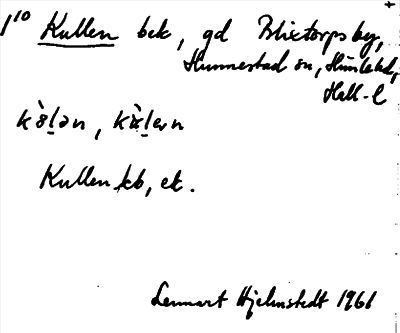 1¹⁰ Kullen bek, gd Blixtorps by,
Hunnestad sn, Himle hd,
Hall-l
Kullen kb, ek.
Lennart Hjelmstedt 1961